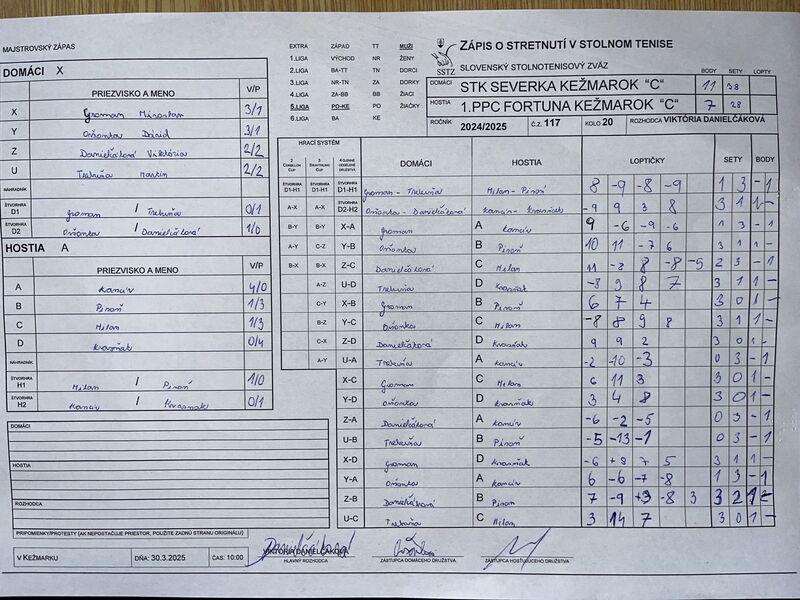 MAJSTROVSKÝ ZÁPAS
EXTRA ZÁPAD TT MUŽI
1.LIGA VÝCHOD NR ŽENY
2.LIGA BA-TT TN DORCI
3.LIGA NR-TN ZA DORKY
4.LIGA ZA-BB BB ŽIACI
5.LIGA PO-KE PO ŽIAČKY
6.LIGA BA KE
SSTZ
ZÁPIS O STRETNUTÍ V STOLNOM TENISE
SLOVENSKÝ STOLNOTENISOVÝ ZVÄZ
BODY SETY LOPTY
DOMÁCI STK SEVERKA KEŽMAROK "C" 11 38
HOSTIA 1.PPC FORTUNA KEŽMAROK "C" 7 28
ROČNÍK 2024/2025 Č.Z. 117 KOLO 20 ROZHODCA VIKTÓRIA DANIELČÁKOVÁ
DOMÁCI X
PRIEZVISKO A MENO V/P
X Groman Miroslav 3/1
Y Oňonka Dávid 3/1
Z Danielčáková Viktória 2/2
U Trebuňa Martin 2/2
NÁHRADNÍK
ŠTVORHRA D1 Groman / Trebuňa 0/1
ŠTVORHRA D2 Oňonka / Danielčáková 1/0
HOSTIA A
PRIEZVISKO A MENO V/P
A 4/0
B Pisoň 1/3
C Milan 1/3
D 0/4
NÁHRADNÍK
ŠTVORHRA H1 Milan / Pisoň 1/0
ŠTVORHRA H2 0/1
DOMÁCI
HOSTIA
ROZHODCA
PRIPOMIENKY/PROTESTY (AK NEPOSTAČUJE PRIESTOR, POUŽITE ZADNÚ STRANU ORIGINÁLU)
V KEŽMARKU DŇA: 30.3.2025 ČAS: 10:00
VIKTÓRIA DANIELČÁKOVÁ
HLAVNÝ ROZHODCA
ZÁSTUPCA DOMÁCEHO DRUŽSTVA
ZÁSTUPCA HOSŤUJÚCEHO DRUŽSTVA
HRACÍ SYSTÉM
DOMÁCI HOSTIA LOPTIČKY SETY BODY
ŠTVORHRA D1-H1 ŠTVORHRA D1-H1 ŠTVORHRA D1-H1 Groman - Trebuňa Milan - Pisoň 8 -9 -8 -9 1 3 - 1
A-X A-X ŠTVORHRA D2-H2 Oňonka - Danielčáková -9 9 3 8 3 1 1 -
B-Y B-Y X-A Groman A 9 -6 -9 -6 1 3 - 1
A-Y C-Z Y-B Oňonka B Pisoň 10 11 -7 6 3 1 1 -
B-X B-X Z-C Danielčáková C Milan 11 -8 8 -8 -9 2 3 - 1
A-Z U-D Trebuňa D -8 9 8 7 3 1 1 -
C-Y X-B Groman B Pisoň 6 7 4 3 0 1 -
B-Z Y-C Oňonka C Milan -8 8 9 8 3 1 1 -
C-X Z-D Danielčáková D 9 9 2 3 0 1 -
A-Y U-A Trebuňa A -2 -10 -3 0 3 - 1
X-C Groman C Milan 6 11 3 3 0 1 -
Y-D Oňonka D 3 4 8 3 0 1 -
Z-A Danielčáková A -6 -2 -5 0 3 - 1
U-B Trebuňa B Pisoň -5 -13 -1 0 3 - 1
X-D Groman D -6 8 7 5 3 1 1 -
Y-A Oňonka A 6 -6 -7 -8 1 3 - 1
Z-B Danielčáková B Pisoň 7 -9 3 -8 3 3 2 1 -
U-C Trebuňa C Milan 3 14 7 3 0 1 -